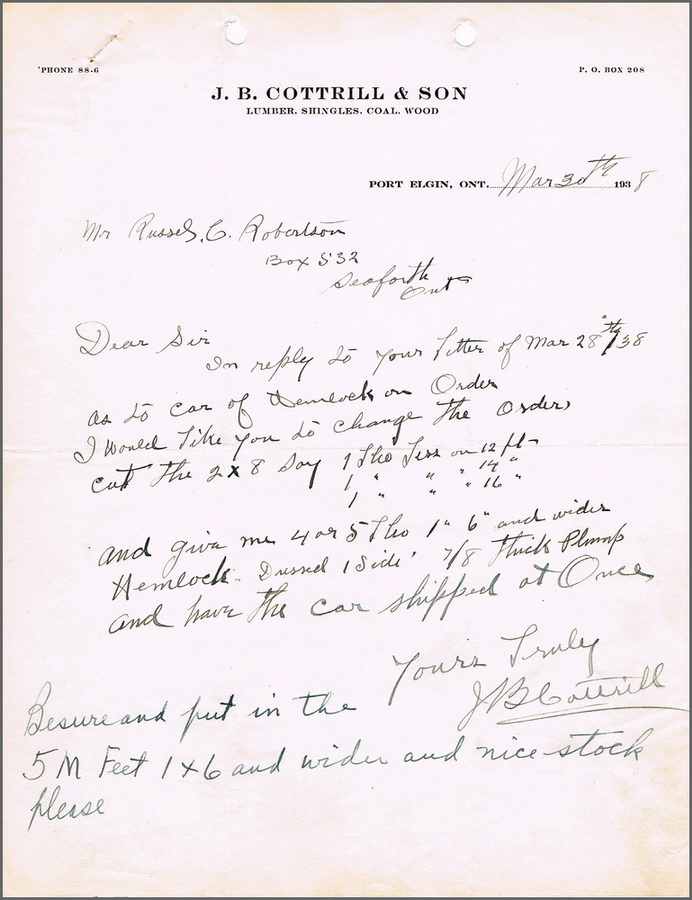 'PHONE 88-6
P. O. BOX 208
J. B. COTTRILL & SON
LUMBER, SHINGLES, COAL, WOOD
PORT ELGIN, ONT. Mar 30th 1938
Mr Russel. C. Robertson
Box 532
Seaforth
Ont
Dear Sir
In reply to your letter of Mar 28th/38
as to car of Hemlock on Order
I Would like you to change the order,
cut the 2x8 Say 1 Tho Less on 12 ft
1 " " " 14 "
1 " " " 16 "
and give me 4 or 5 Tho 1" 6" and wider
Hemlock. Dressed 1 Side 7/8 thick Plump
and have the car shipped at Once
Yours Truly
J B Cottrill
Besure and put in the
5 M Feet 1x6 and wider and nice stock
please